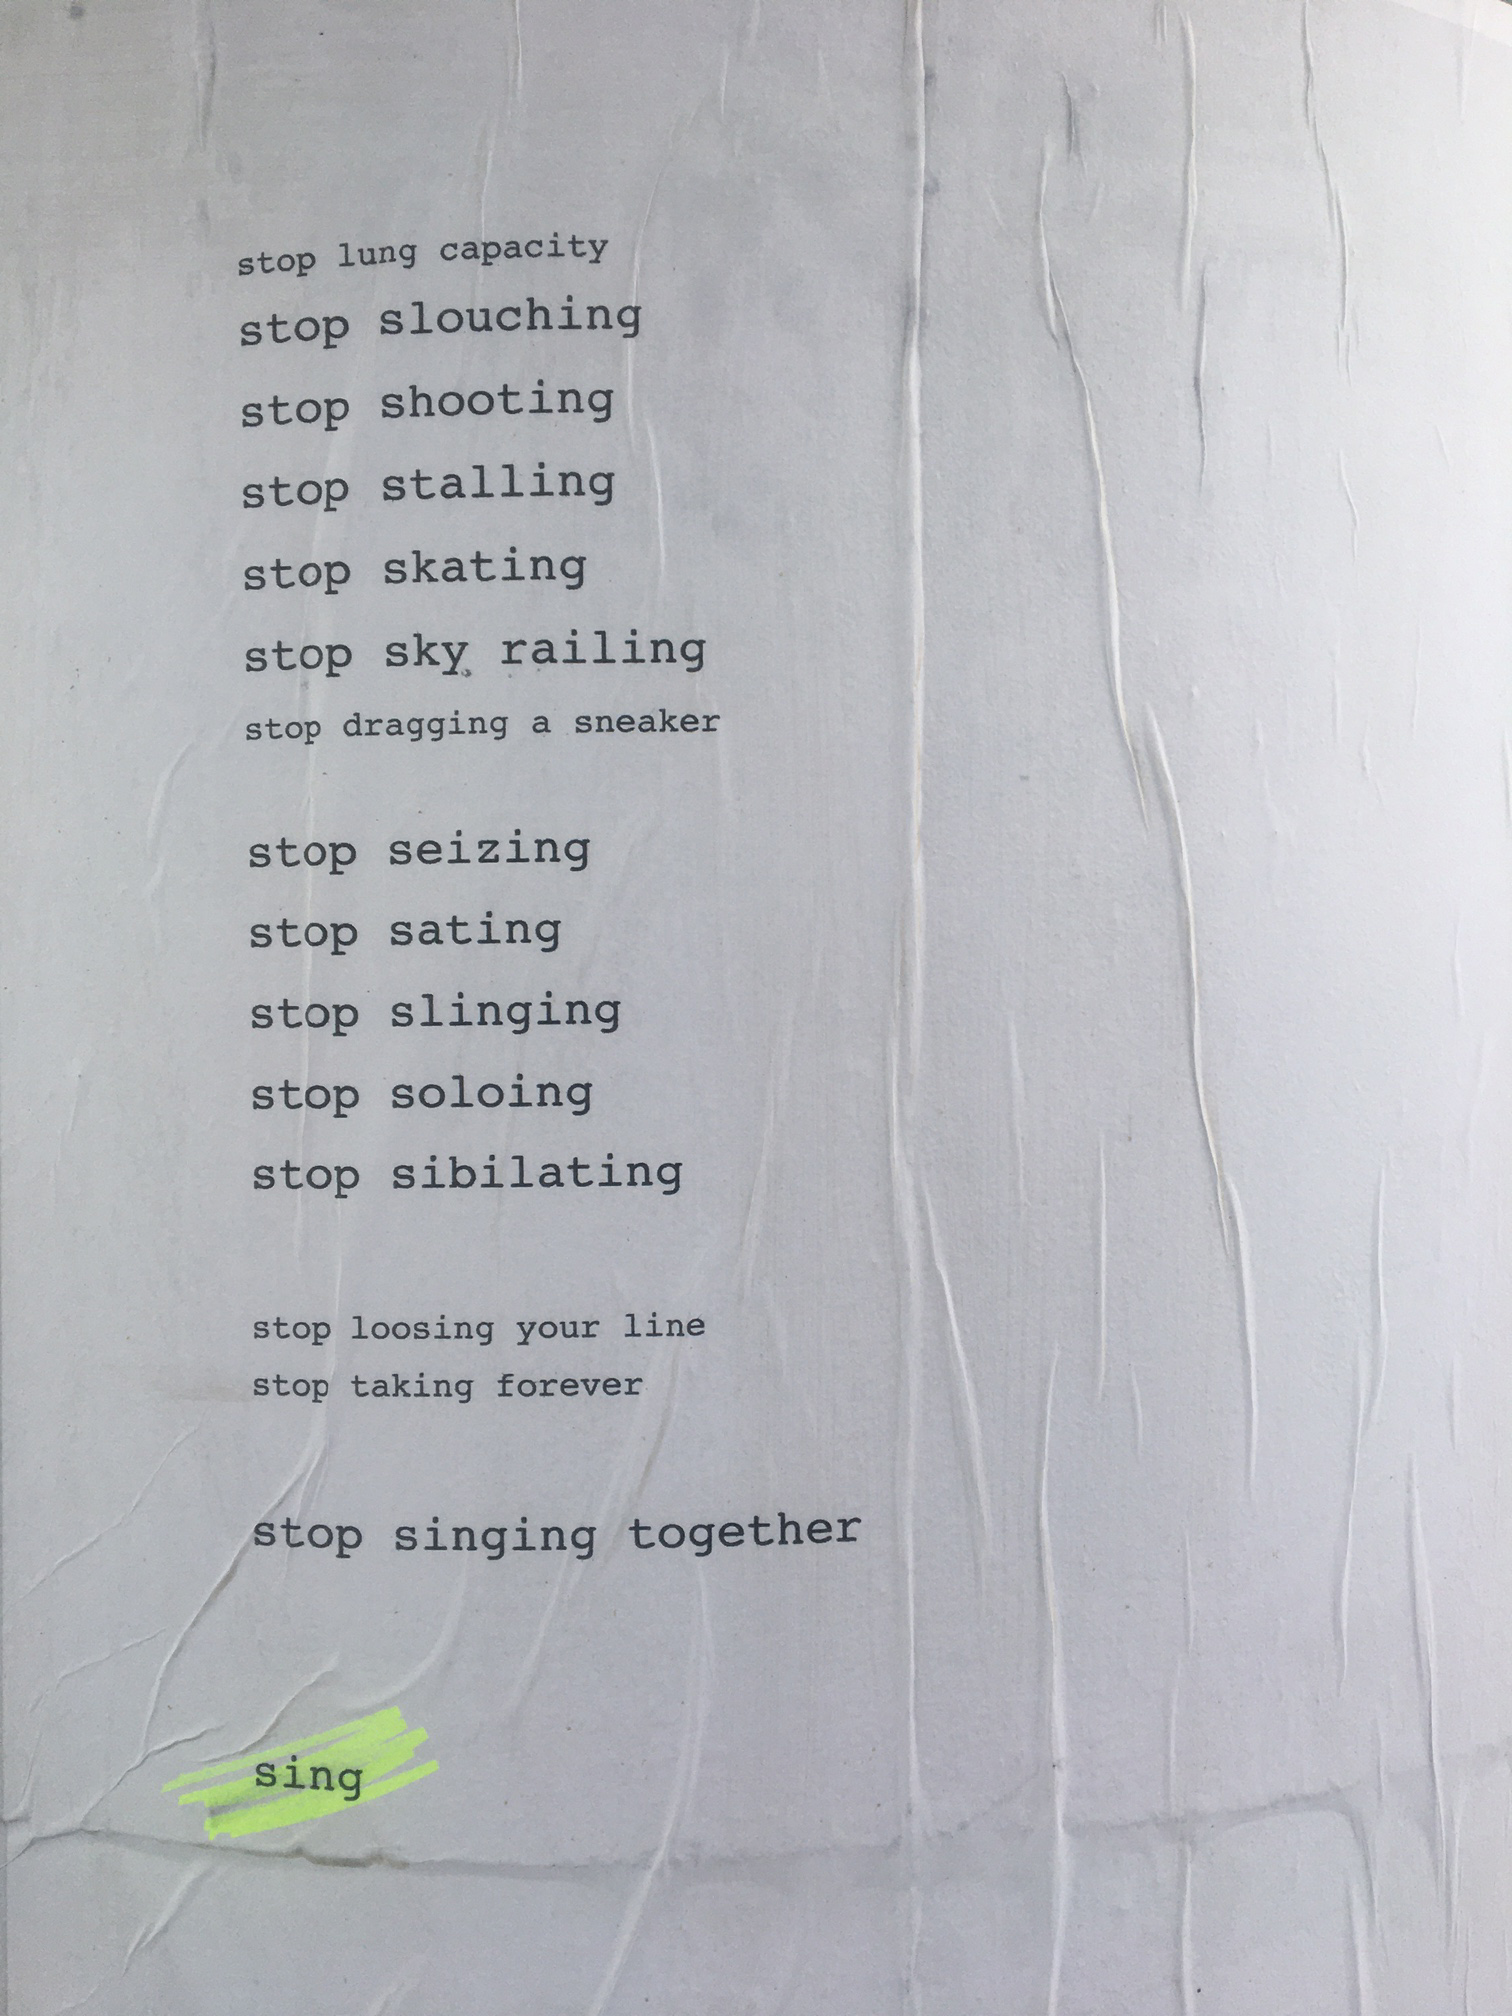 stop lung capacity
stop slouching
stop shooting
stop stalling
stop skating
stop sky railing
stop dragging a sneaker
stop seizing
stop sating
stop slinging
stop soloing
stop sibilating
stop loosing your line
stop taking forever
stop singing together
sing